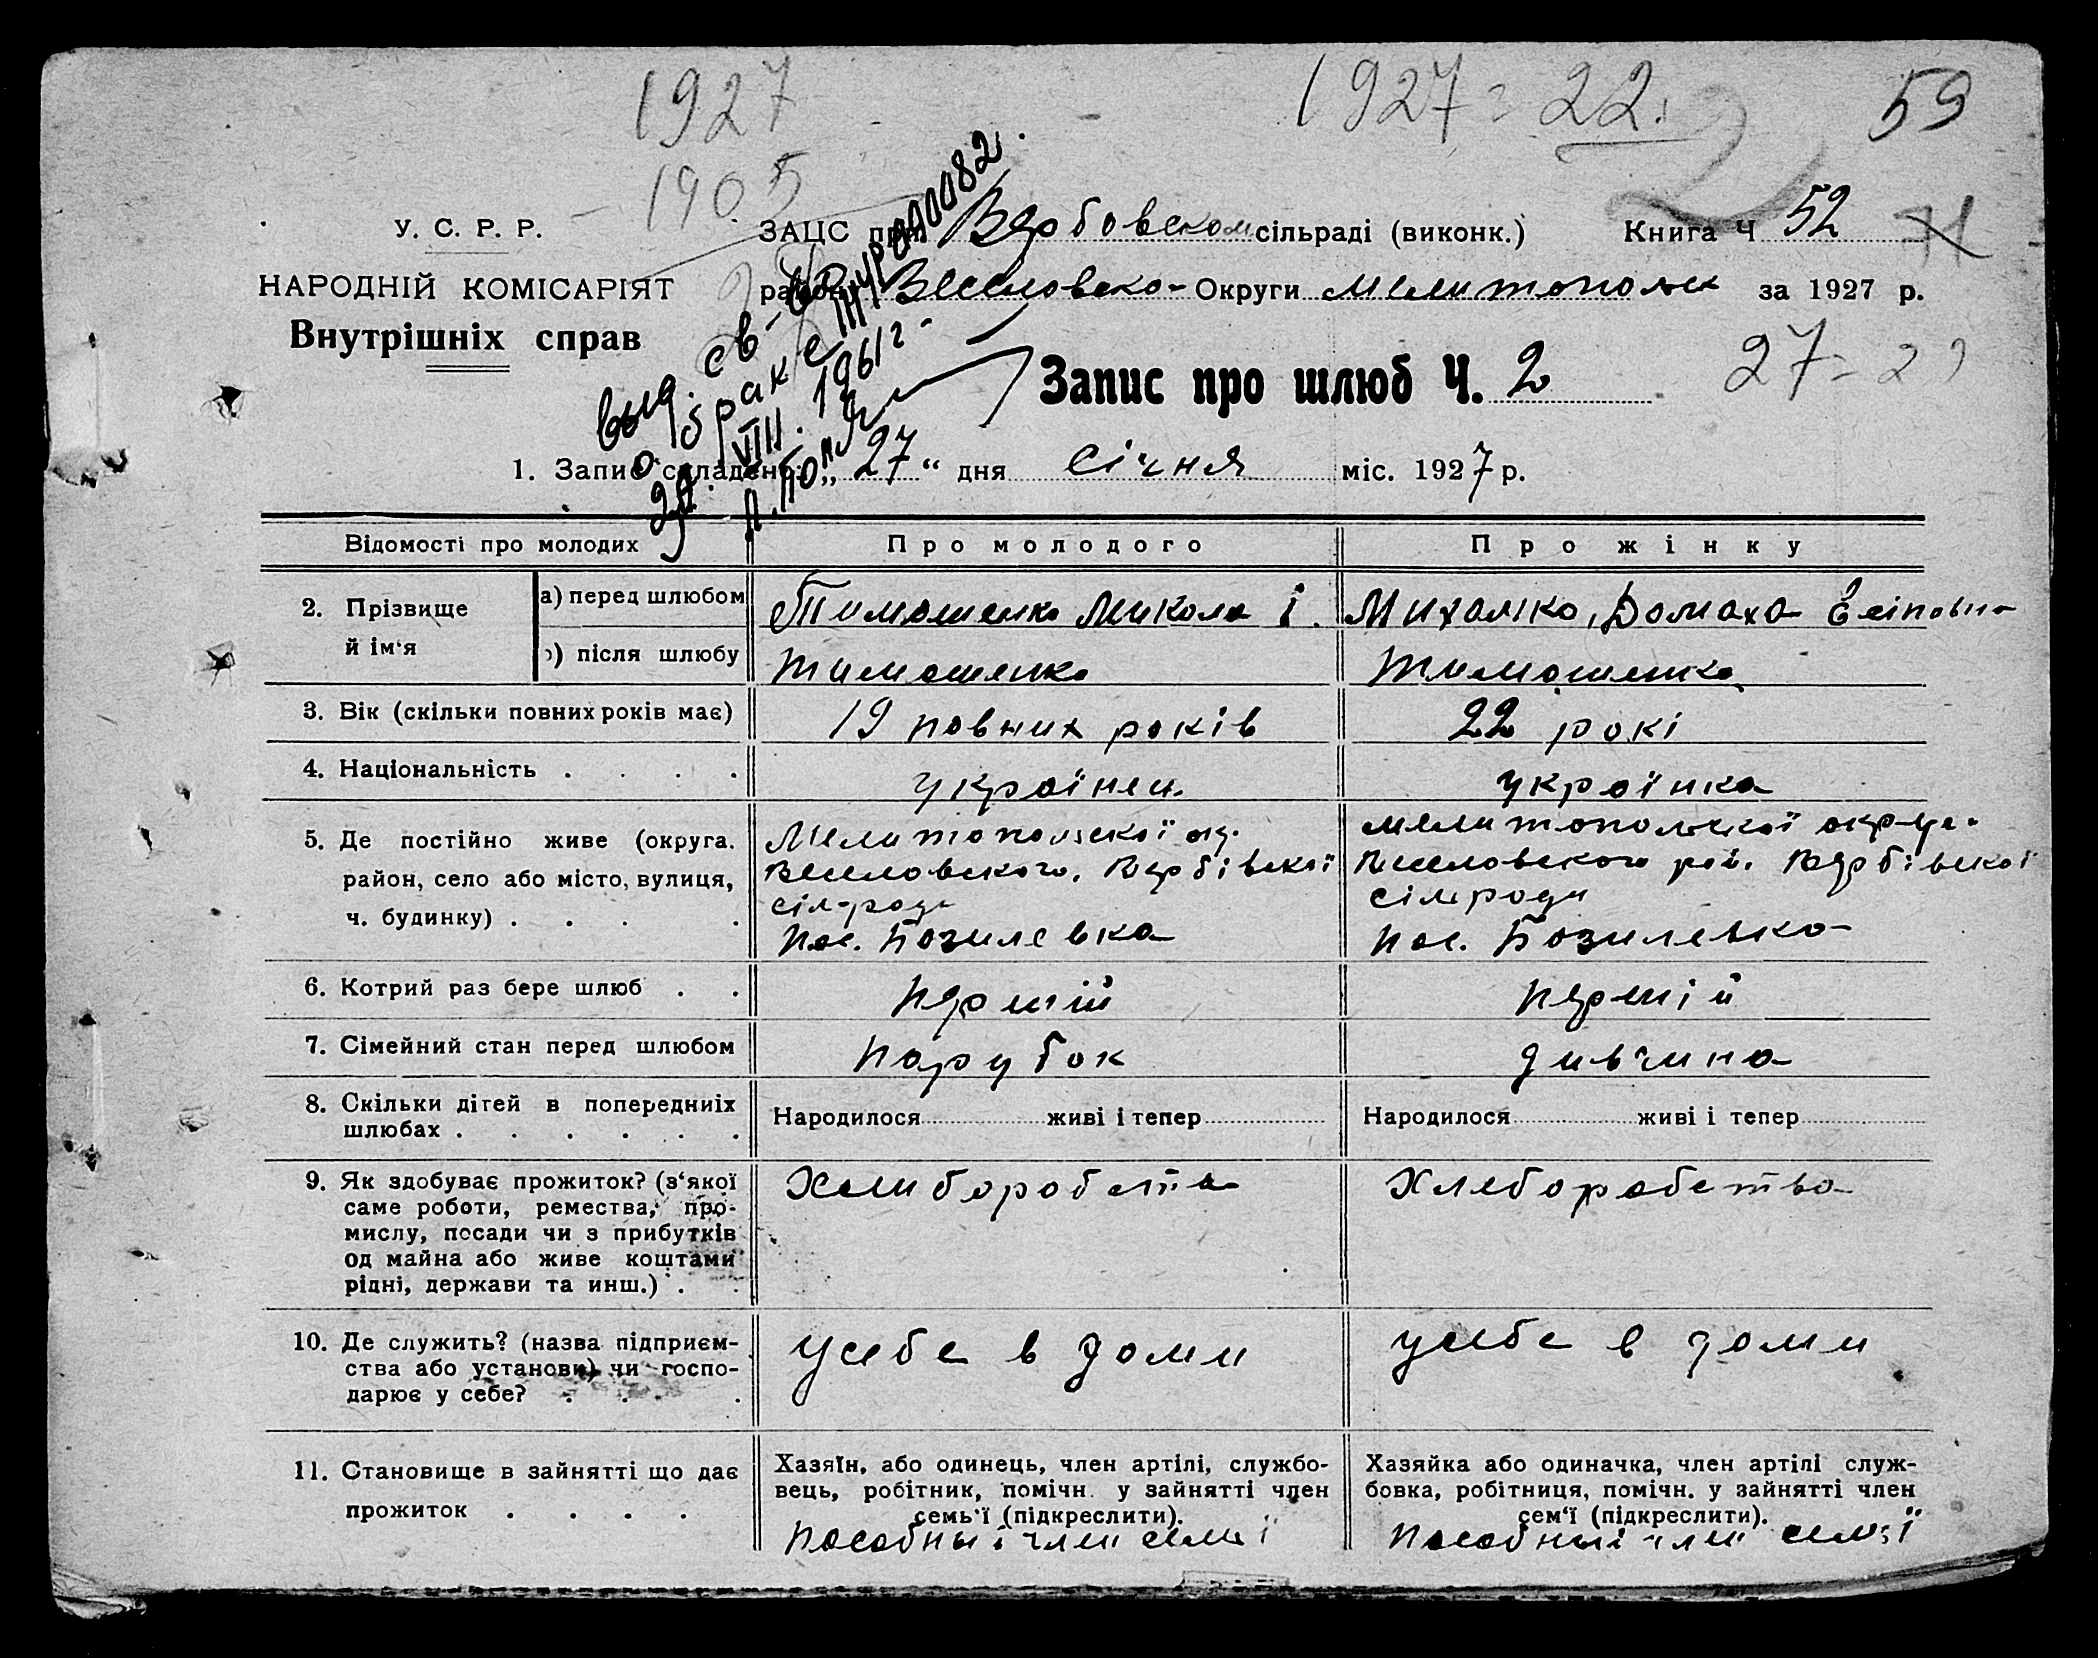 1927
1927 = 22.
59
1905
У. С. Р. Р.
НАРОДНІЙ КОМІСАРІЯТ
Внутрішніх справ
ЗАЦС при Вербовском сільраді (виконк.) Книга Ч 52
району Веселовско- Округи Мелитополск за 1927 р.
выд. св-во
о браке III УР 0900082.
VIII. 1961г.
Запис про шлюб Ч. 2
27 = 22
1. Запис складено: „ 27 “ дня січня міс. 1927 р.
Відомості про молодих Про молодого Про жінку
2. Прізвище й ім‘я
а) перед шлюбом Тимошенко Микола І. Михалко, Домаха Есіповна
б) після шлюбу Тимошенко Тимошенко
3. Вік (скільки повних років має) 19 повних років 22 років
4. Національність . . . . українец українка
5. Де постійно живе (округа.
район, село або місто, вулиця,
ч. будинку) . . . .
Мелитопольскої ок.
Веселовского, Вербівскої
сіл-ради
Пос. Базилевка
Мелитопольскої округи
Веселовского рай. Вербівскої
сілради
Пос. Базилевка
6. Котрий раз бере шлюб . . Перший Перший
7. Сімейний стан перед шлюбом Парубок дивчина
8. Скільки дітей в попередниіх
шлюбах . . . . . .
Народилося живі і тепер Народилося живі і тепер
9. Як здобуває прожиток? (з‘якої
саме роботи, ремества, про-
мислу, посади чи з прибутків
од майна або живе коштами
рідні, держави та инш.) . .
Хлиборобства Хлеборобство
10. Де служить? (назва підприєм-
ства або установи) чи госпо-
дарює у себе? . . . .
усебе в доми усебе в доми
11. Становище в зайнятті що дає
прожиток . . . .
Хазяїн, або одинець, член артілі, службо-
вець, робітник, помічн. у зайнятті член
семь‘ї (підкреслити).
Пособный член семї
Хазяйка або одиначка, член артілі служ-
бовка, робітниця, помічн. у зайнятті член
сем‘ї (підкреслити).
Пособный член семьї